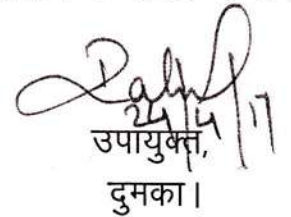 24/4/17
उपायुक्त,
दुमका।